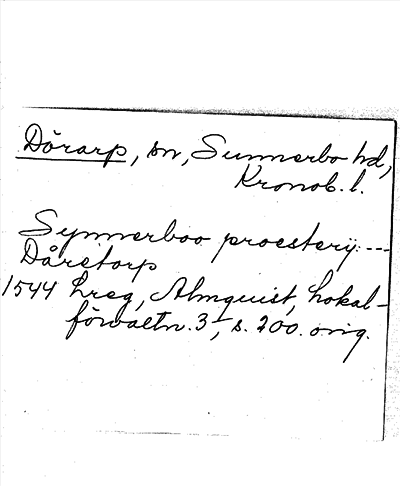 Dörarp, sn, Sunnerbo hd,
Kronob. l.
Synnerboo proesterij: ---
Dåretorp
1544 Lreg, Almquist, Lokal-
förvaltn. 3, s. 200. orig.